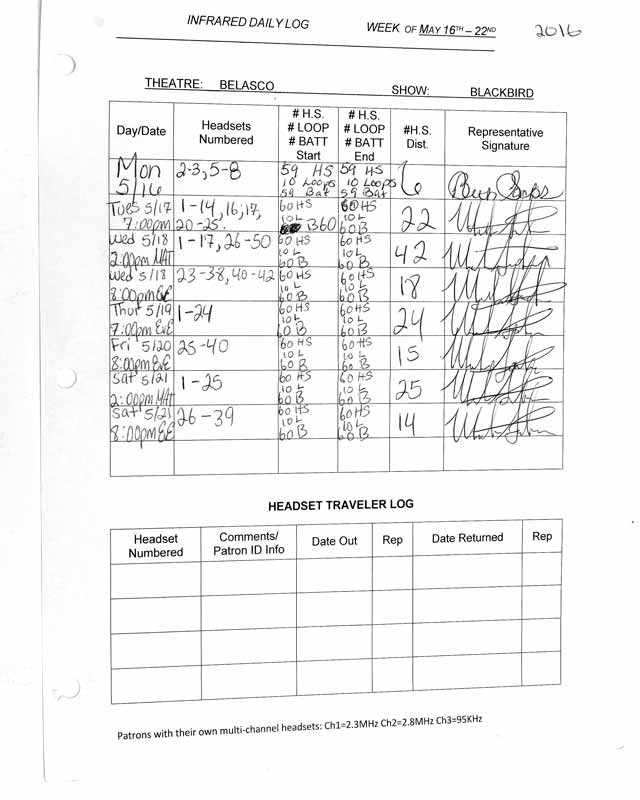 INFRARED DAILY LOG WEEK OF MAY 16TH – 22ND 2016
THEATRE: BELASCO SHOW: BLACKBIRD
Day/Date Headsets Numbered # H.S. # LOOP # BATT Start # H.S. # LOOP # BATT End #H.S. Dist. Representative Signature
Mon 5/16 2-3, 5-8 59 HS 10 Loops 59 Bat 59 HS 10 Loops 59 Bat 6
Tues 5/17 7:00pm 1-14, 16, 17, 20-25. 60 HS 10 L B60 60 HS 10 L 60 B 22
Wed 5/18 2:00pm MAT 1-17, 26-50 60 HS 10 L 60 B 60 HS 10 L 60 B 42
Wed 5/18 8:00pm EVE 23-38, 40-42 60 HS 10 L 60 B 60 HS 10 L 60 B 18
Thur 5/19 7:00pm EVE 1-24 60 HS 10 L 60 B 60 HS 10 L 60 B 24
Fri 5/20 8:00pm EVE 25-40 60 HS 10 L 60 B 60 HS 10 L 60 B 15
Sat 5/21 2:00pm MAT 1-25 60 HS 10 L 60 B 60 HS 10 L 60 B 25
Sat 5/21 8:00pm EVE 26-39 60 HS 10 L 60 B 60 HS 10 L 60 B 14
HEADSET TRAVELER LOG
Headset Numbered Comments/ Patron ID Info Date Out Rep Date Returned Rep
Patrons with their own multi-channel headsets: Ch1=2.3MHz Ch2=2.8MHz Ch3=95KHz